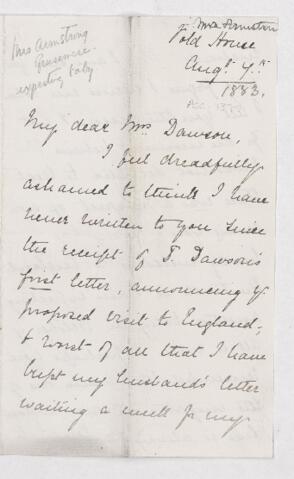 Mrs Armstrong
Grasmere
expecting baby
Fold House
Augt 7th
1883.
My dear Mrs Dawson,
I feel dreadfully
ashamed to think I have
never written to you since
the receipt of T. Dawson's
first letter, announcing yr
proposed visit to England,
& worst of all that I have
kept my husband's letter
waiting a week for my